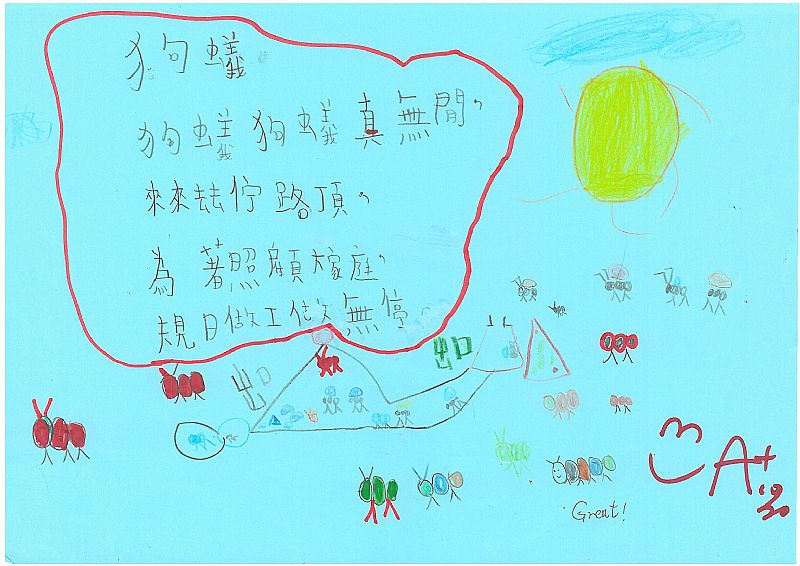 狗蟻
狗蟻狗蟻真無閒，
來來去去佇路頂，
為著照顧大家庭，
規日做工做無停。
出口
出口
A+
10
20
Great!